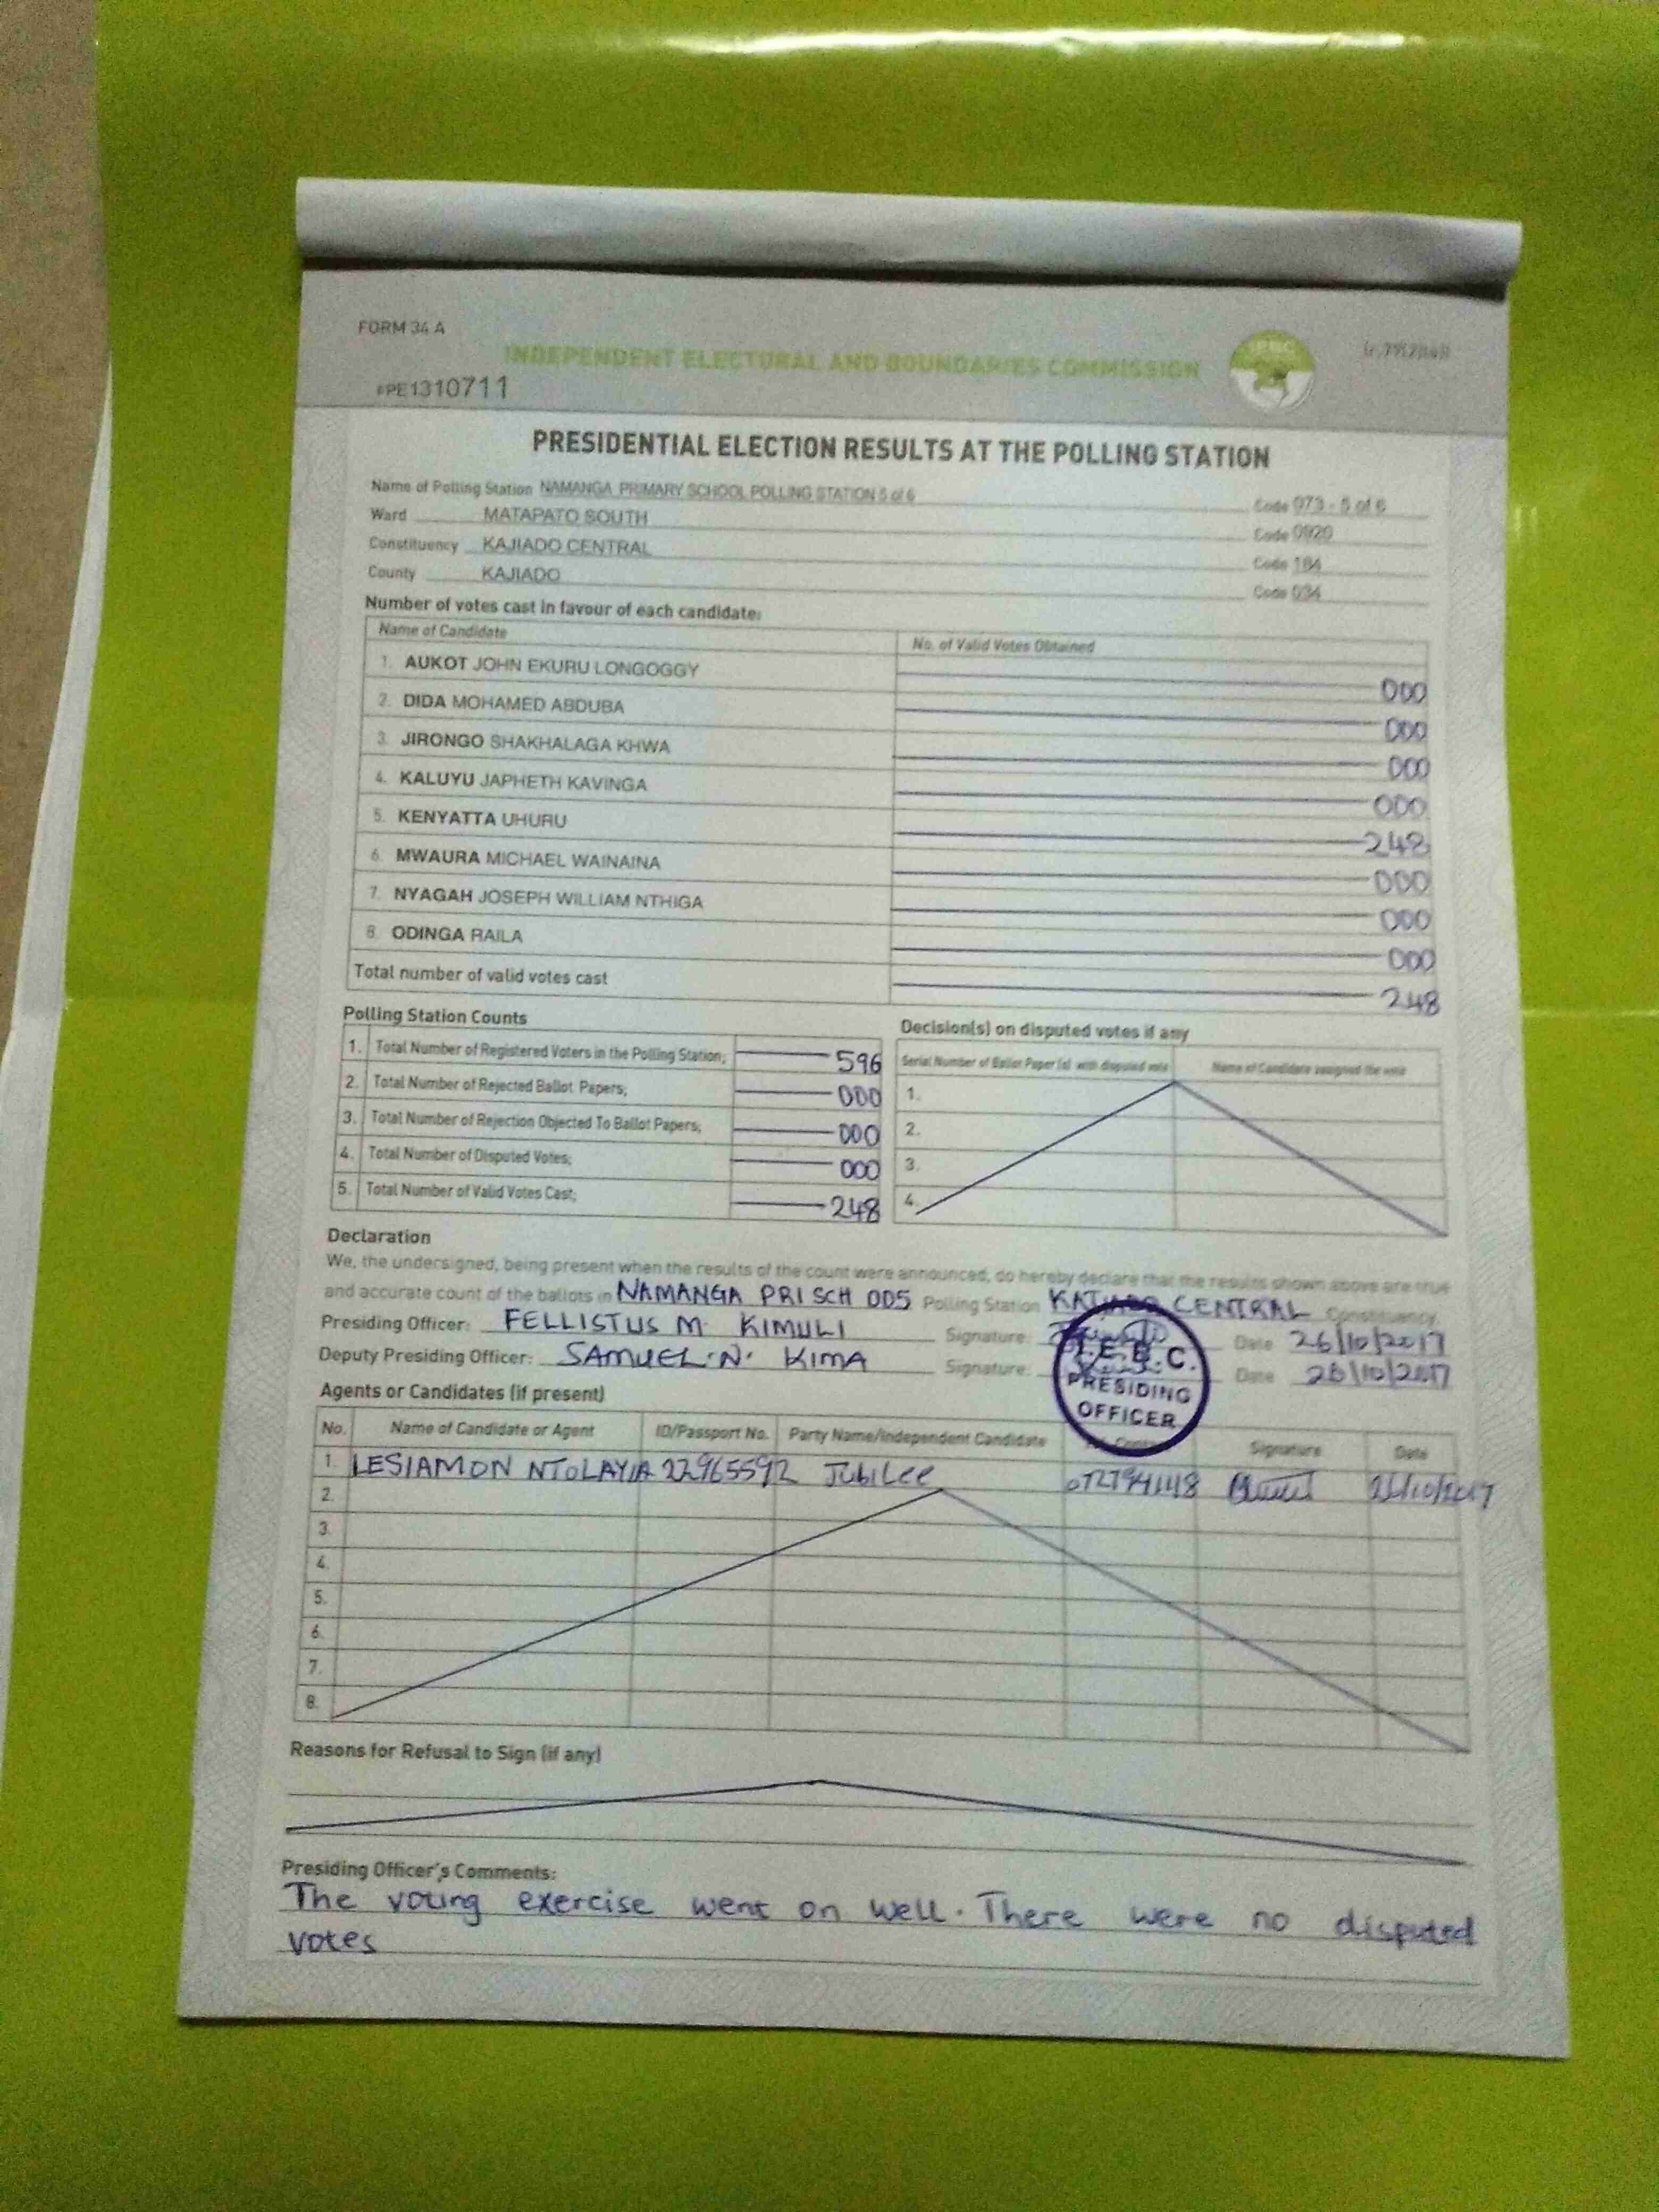 FORM 34 A
INDEPENDENT ELECTORAL AND BOUNDARIES COMMISSION
#PE1310711
PRESIDENTIAL ELECTION RESULTS AT THE POLLING STATION
Name of Polling Station NAMANGA PRIMARY SCHOOL POLLING STATION 5 of 6 Code 073 - 5 of 6
Ward MATAPATO SOUTH Code 0920
Constituency KAJIADO CENTRAL Code 184
County KAJIADO Code 034
Number of votes cast in favour of each candidate:
Name of Candidate No. of Valid Votes Obtained
1. AUKOT JOHN EKURU LONGOGGY 000
2. DIDA MOHAMED ABDUBA 000
3. JIRONGO SHAKHALAGA KHWA 000
4. KALUYU JAPHETH KAVINGA 000
5. KENYATTA UHURU 248
6. MWAURA MICHAEL WAINAINA 000
7. NYAGAH JOSEPH WILLIAM NTHIGA 000
8. ODINGA RAILA 000
Total number of valid votes cast 248
Polling Station Counts
1. Total Number of Registered Voters in the Polling Station; 596
2. Total Number of Rejected Ballot Papers; 000
3. Total Number of Rejection Objected To Ballot Papers; 000
4. Total Number of Disputed Votes; 000
5. Total Number of Valid Votes Cast; 248
Decision(s) on disputed votes if any
Serial Number of Ballot Paper (s) with disputed vote Name of Candidate assigned the vote
1.
2.
3.
4.
Declaration
We, the undersigned, being present when the results of the count were announced, do hereby declare that the results shown above are true
and accurate count of the ballots in NAMANGA PRI SCH 005 Polling Station KAJIADO CENTRAL Constituency.
Presiding Officer: FELLISTUS M. KIMULI Signature: Date 26/10/2017
Deputy Presiding Officer: SAMUEL.N. KIMA Signature: Date 26/10/2017
I.E.B.C.
PRESIDING
OFFICER
Agents or Candidates (if present)
No. Name of Candidate or Agent ID/Passport No. Party Name/Independent Candidate Signature Date
1. LESIAMON NTOLAYIA 22965592 Jubilee 26/10/2017
2.
3.
4.
5.
6.
7.
8.
Reasons for Refusal to Sign (if any)
Presiding Officer's Comments:
The voting exercise went on well. There were no disputed
votes